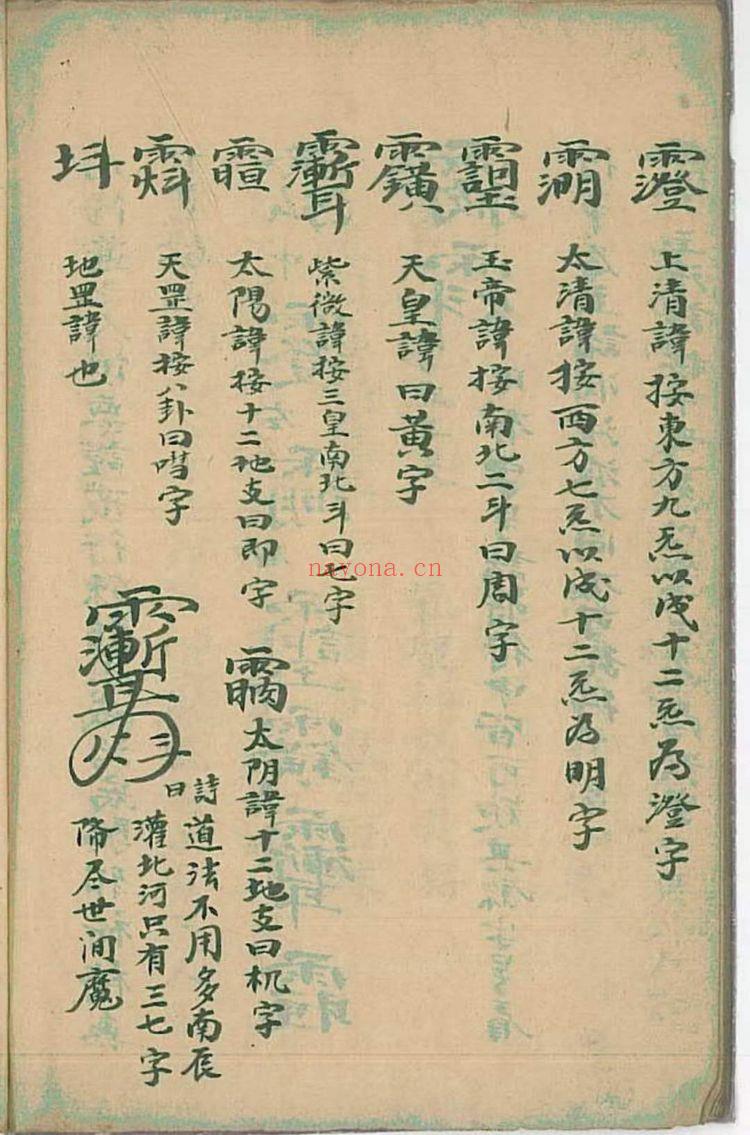 上清諱按東方九炁以成十二炁為澄字
太清諱按西方七炁以成十二炁為明字
玉帝諱按南北二斗曰周字
天皇諱曰黃字
紫微諱按三皇南北斗曰字
太陽諱按十二地支曰即字
太阴諱十二地支曰机字
天罡諱按八卦曰字
地罡諱也
詩曰
道法不用多南辰
灌北河只有三七字
降尽世间魔
nayona.cn